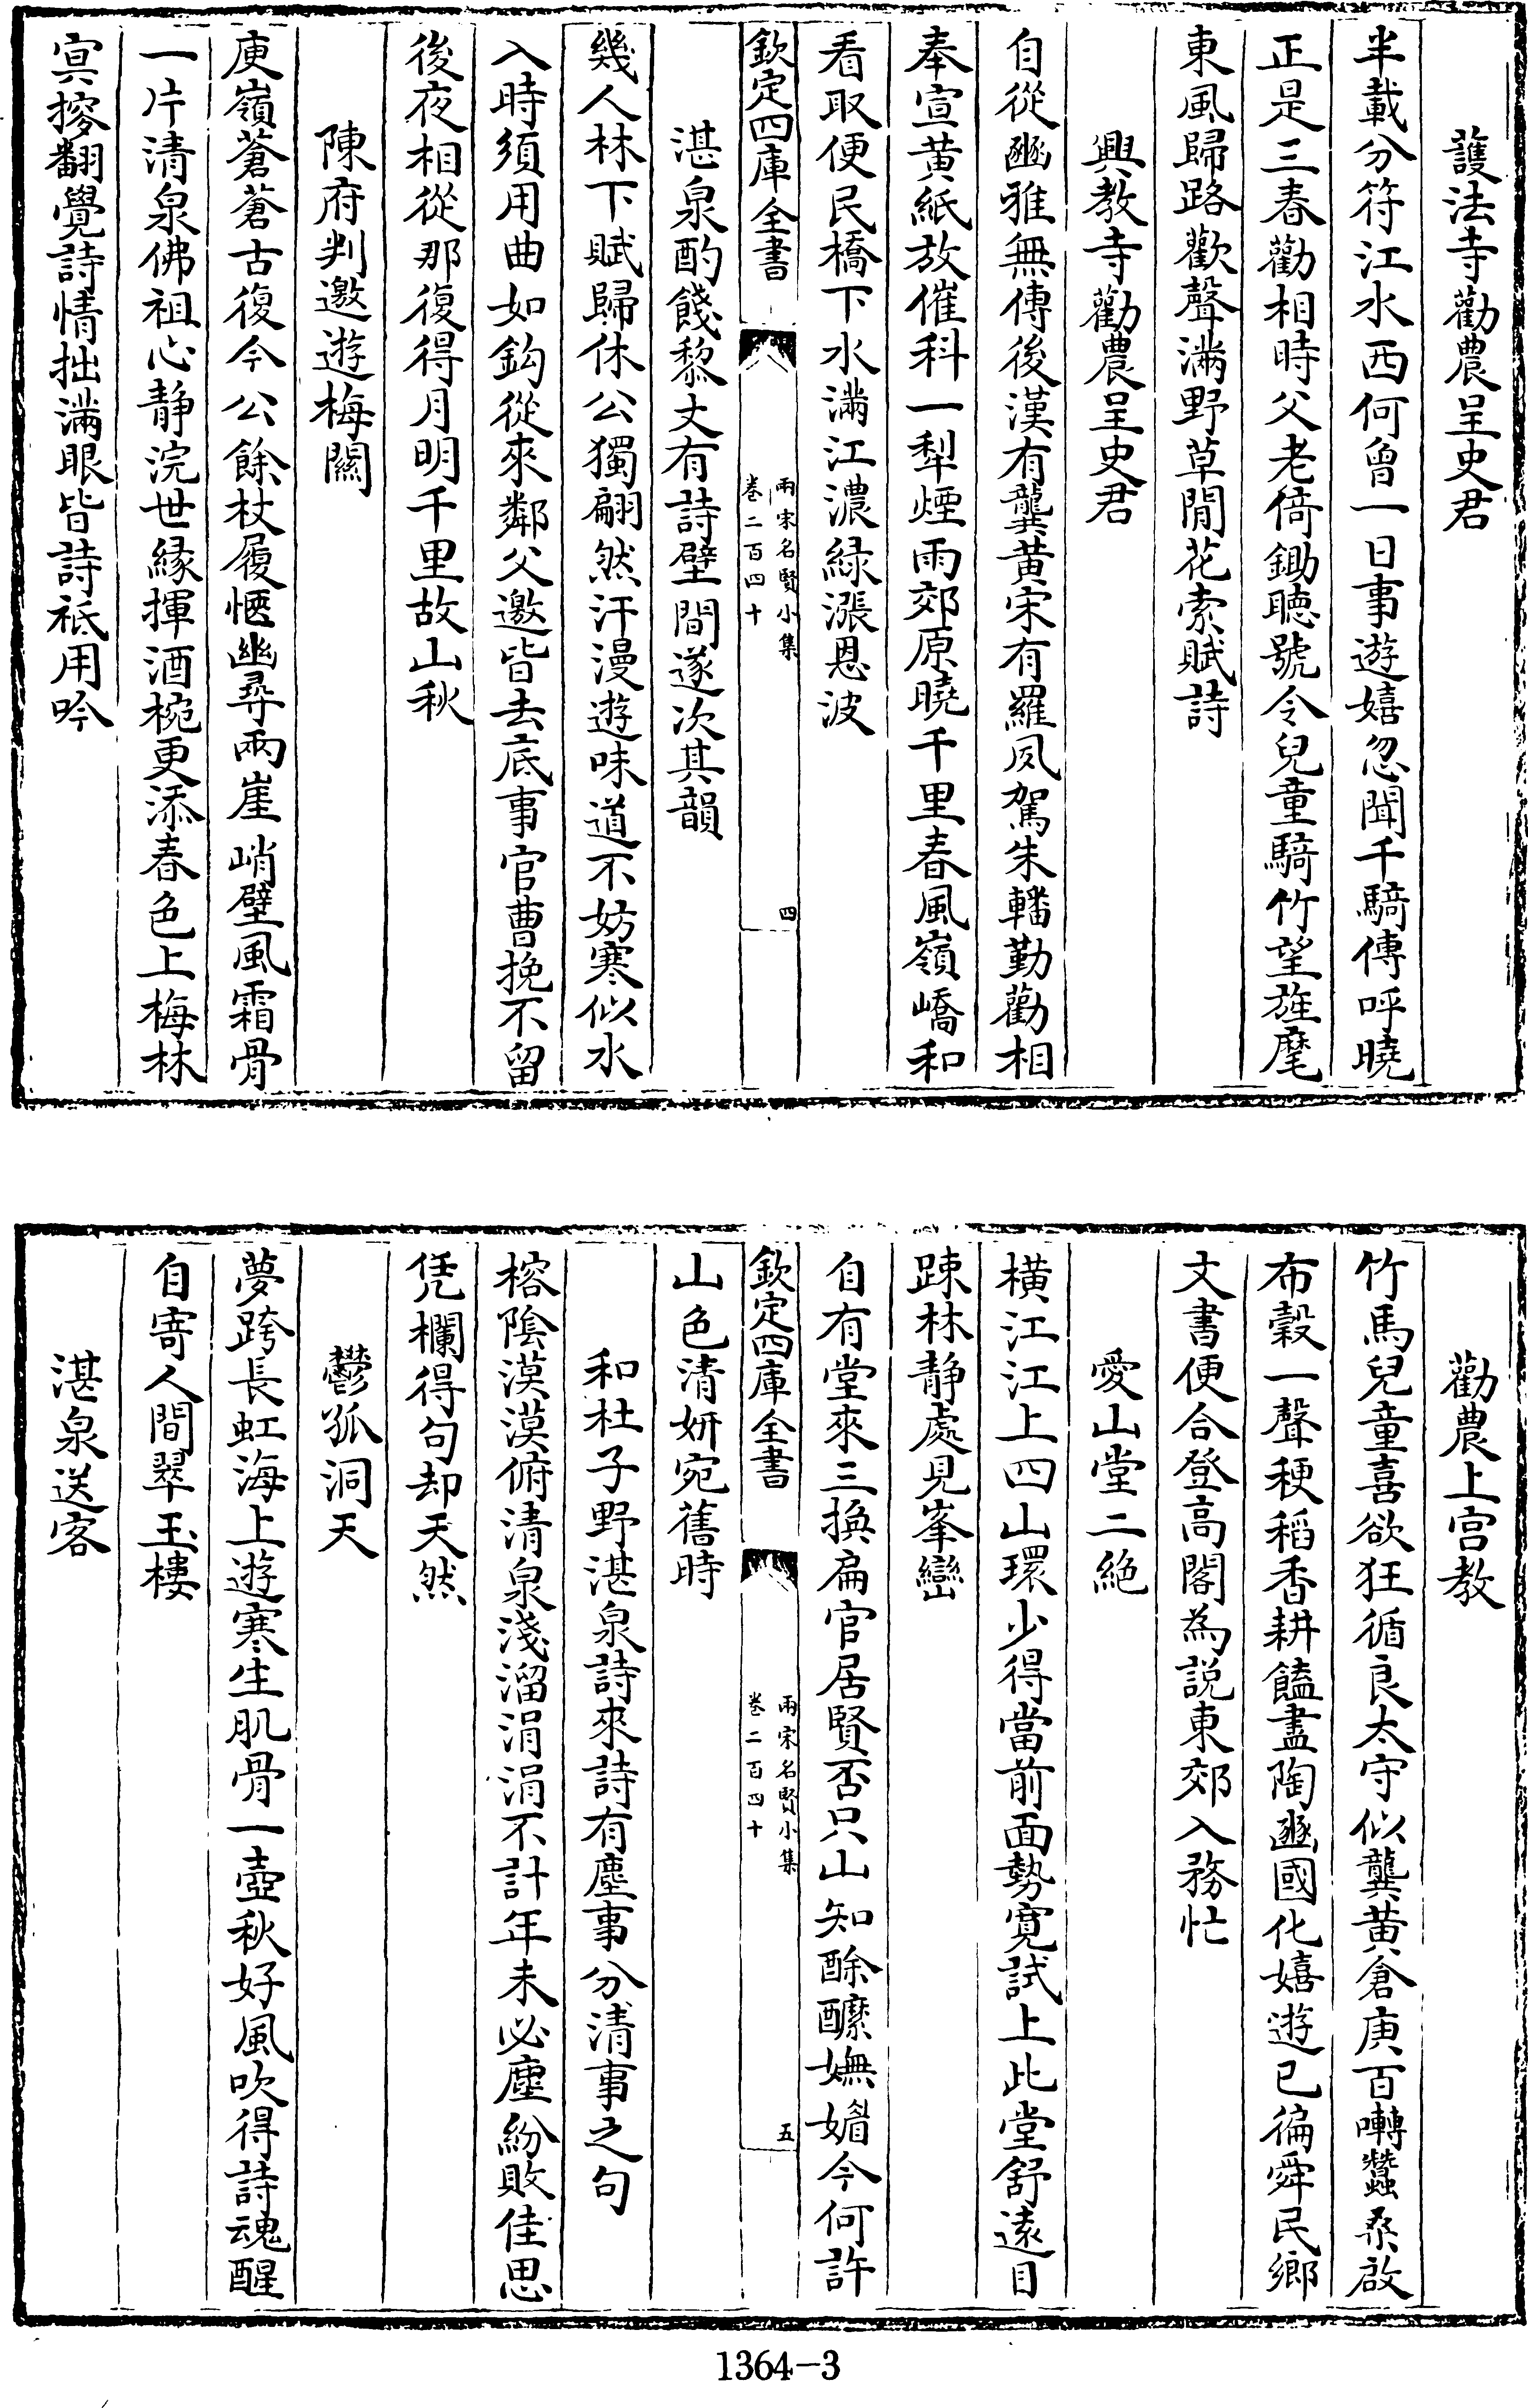 護法寺勸農呈史君
半載分符江水西何曾一日事遊嬉忽聞千騎傳呼曉
正是三春勸相時父老倚鋤聴號令兒童騎竹望旌麾
東風歸路歡聲滿野草閒花索賦詩
興教寺勸農呈史君
自從豳雅無傳後漢有龔黄宋有羅夙駕朱轓勤勸相
奉宣黄紙放催科一犁煙雨郊原曉千里春風嶺嶠和
看取便民橋下水滿江濃緑漲恩波
欽定四庫全書
兩宋名賢小集
卷二百四十
四
湛泉酌餞黎丈有詩壁間遂次其韻
幾人林下賦歸休公獨翩然汗漫遊味道不妨寒似水
入時須用曲如鈎從來鄰父邀皆去底事官曹挽不留
後夜相從那復得月明千里故山秋
陳府判邀遊梅關
庾嶺蒼蒼古復今公餘杖履愜幽尋兩崖峭壁風霜骨
一片清泉佛祖心静浣世緣揮酒椀更添春色上梅林
冥搜翻覺詩情拙滿眼皆詩祗用吟
勸農上宫教
竹馬兒童喜欲狂循良太守似龔黄倉庚百囀蠶桑啟
布穀一聲稉稻香耕饁盡陶豳國化嬉遊已徧舜民鄉
文書便合登高閣為説東郊入務忙
愛山堂二絶
横江江上四山環少得當前面勢寛試上此堂舒逺目
踈林静處見峯巒
自有堂來三換扁官居賢否只山知酴醿嫵媚今何許
欽定四庫全書
兩宋名賢小集
卷二百四十
五
山色清妍宛舊時
和杜子野湛泉詩來詩有塵事分清事之句
榕隂漠漠俯清泉淺溜涓涓不計年未必塵紛敗佳思
凭欄得句却天然
鬱孤洞天
夢跨長虹海上遊寒生肌骨一壺秋好風吹得詩魂醒
自寄人間翠玉樓
湛泉送客
1364-3